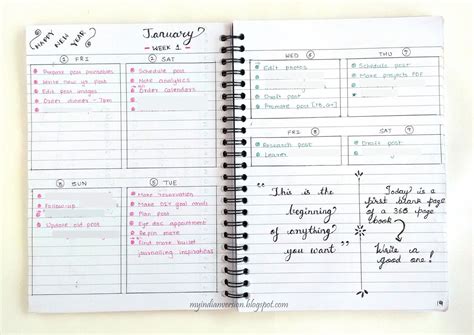 HAPPY
NEW
YEAR
January
WEEK 1
1 FRI
Prepare post printables
Write new yr post
Edit post images
Order dinner - 7pm
2 SAT
Schedule post
Note analytics
Order calendars
3 SUN
Follow-up
Update old post
5 TUE
Make reservation
Make DIY goal cards
Plan post
Eye doc appointment
Begin more
Find more bullet
journalling inspirations
WED 6
Edit photos
Draft post
Promote post
THU 7
Schedule post
More projects PDF
FRI 8
Research post
SAT 9
Draft post
"This is the
beginning
of anything
you want"
Today is a
first blank page
of a 365 page
book
Write a
good one!
myindianversion.blogspot.com